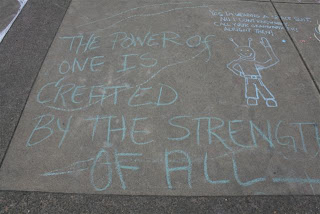 THE POWER OF
ONE IS
CREATED
BY THE STRENGTH
OF ALL